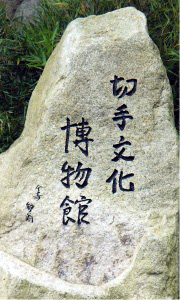 切手文化
博物館